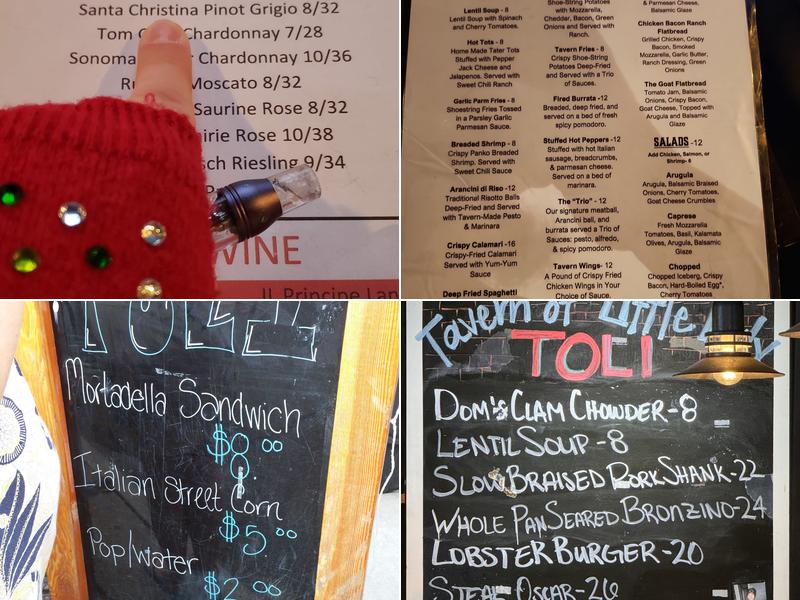 Santa Christina Pinot Grigio 8/32
Tom Chardonnay 7/28
Sonoma Chardonnay 10/36
Moscato 8/32
Saurine Rose 8/32
Rose 10/38
Riesling 9/34
WINE
Il Principe
Lentil Soup - 8
Lentil Soup with Spinach
and Cherry Tomatoes.
Hot Tots - 8
Home Made Tater Tots
Stuffed with Pepper
Jack Cheese and
Jalapenos. Served with
Sweet Chili Ranch
Garlic Parm Fries - 8
Shoestring Fries Tossed
in a Parsley Garlic
Parmesan Sauce.
Breaded Shrimp - 8
Crispy Panko Breaded
Shrimp. Served with
Sweet Chili Sauce
Arancini di Riso -12
Traditional Risotto Balls
Deep-Fried and Served
with Tavern-Made Pesto
& Marinara
Crispy Calamari -16
Crispy-Fried Calamari
Served with Yum-Yum
Sauce
Deep Fried Spaghetti
Shoe-String Potatoes
with Mozzarella,
Chedder, Bacon, Green
Onions and Served with
Ranch.
Tavern Fries - 8
Crispy Shoe-String
Potatoes Deep-Fried
and Served with a Trio
of Sauces.
Fired Burrata -12
Breaded, deep fried, and
served on a bed of fresh
spicy pomodoro.
Stuffed Hot Peppers -12
Stuffed with hot Italian
sausage, breadcrumbs,
& parmesan cheese.
Served on a bed of
marinara.
The "Trio" - 12
Our signature meatball,
Arancini ball, and
burrata served a Trio of
Sauces: pesto, alfredo,
& spicy pomodoro.
Tavern Wings- 12
A Pound of Crispy Fried
Chicken Wings in Your
Choice of Sauce.
& Parmesan Cheese,
Balsamic Glaze
Chicken Bacon Ranch
Flatbread
Grilled Chicken, Crispy
Bacon, Smoked
Mozzarella, Garlic Butter,
Ranch Dressing, Green
Onions
The Goat Flatbread
Tomato Jam, Balsamic
Onions, Crispy Bacon,
Goat Cheese, Topped with
Arugula and Balsamic
Glaze
SALADS -12
Add Chicken, Salmon, or
Shrimp- 6
Arugula
Arugula, Balsamic Braised
Onions, Cherry Tomatoes,
Goat Cheese Crumbles
Caprese
Fresh Mozzarella
Tomatoes, Basil, Kalamata
Olives, Arugula, Balsamic
Glaze
Chopped
Chopped Iceberg, Crispy
Bacon, Hard-Boiled Egg*,
Cherry Tomatoes
Mortadella Sandwich
$8.00
Italian Street Corn
$5.00
Pop/water
$2.00
Tavern of Little
TOLI
DOM'S CLAM CHOWDER-8
LENTIL SOUP-8
SLOW BRAISED PORK SHANK-22
WHOLE PAN SEARED BRONZINO-24
LOBSTER BURGER-20
STEAK OSCAR-26